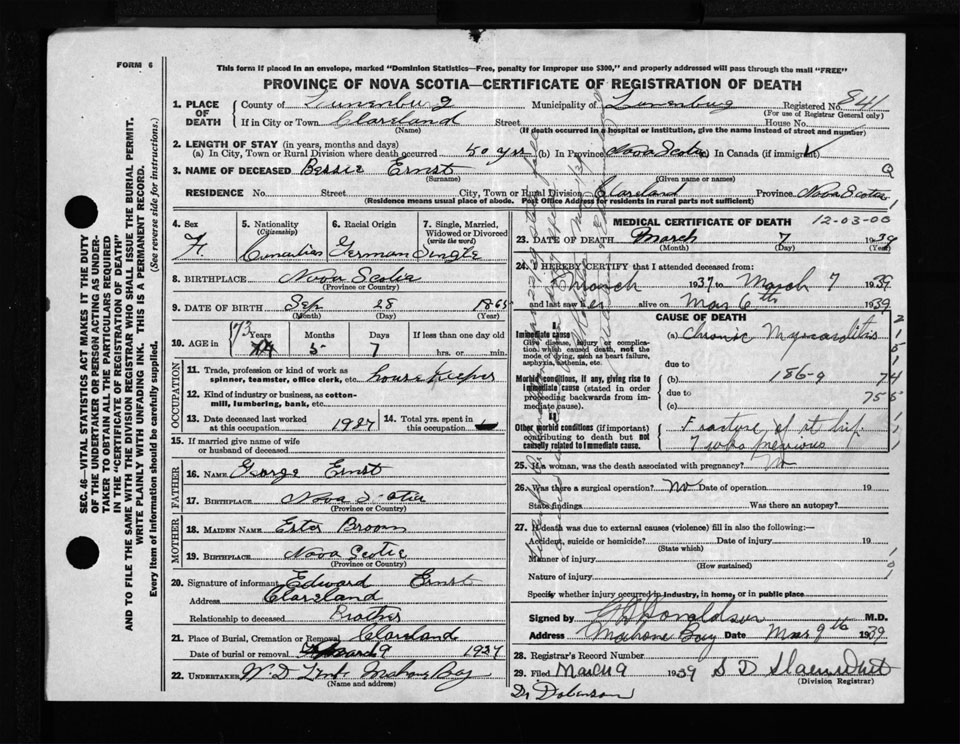 FORM 6
This form if placed in an envelope, marked "Dominion Statistics—Free, penalty for improper use $300," and properly addressed will pass through the mail "FREE"
PROVINCE OF NOVA SCOTIA—CERTIFICATE OF REGISTRATION OF DEATH
1. PLACE OF DEATH
County of Lunenburg Municipality of Lunenburg Registered No. 841
(For use of Registrar General only)
If in City or Town Clareland Street House No.
(Name) (If death occurred in a hospital or institution, give the name instead of street and number)
2. LENGTH OF STAY (in years, months and days)
(a) In City, Town or Rural Division where death occurred 50 yrs (b) In Province Nova Scotia (c) In Canada (if immigrant)
3. NAME OF DECEASED Bessie Ernst
(Surname) (Given name or names)
RESIDENCE No. Street City, Town or Rural Division Clareland Province Nova Scotia
(Residence means usual place of abode. Post Office Address for residents in rural parts not sufficient)
4. Sex F.
5. Nationality (Citizenship) Canadian
6. Racial Origin German
7. Single, Married, Widowed or Divorced (write the word) Single
8. BIRTHPLACE Nova Scotia
(Province or Country)
9. DATE OF BIRTH Sep 28 1865
(Month) (Day) (Year)
10. AGE in 73 Years 5 Months 7 Days If less than one day old
hrs. or min.
OCCUPATION
11. Trade, profession or kind of work as spinner, teamster, office clerk, etc. housekeeper
12. Kind of industry or business, as cotton-mill, lumbering, bank, etc.
13. Date deceased last worked at this occupation 1937
14. Total yrs. spent in this occupation
15. If married give name of wife or husband of deceased
FATHER
16. NAME George Ernst
17. BIRTHPLACE Nova Scotia
(Province or Country)
MOTHER
18. MAIDEN NAME Ester Broom
19. BIRTHPLACE Nova Scotia
(Province or Country)
20. Signature of informant Edward Ernst
Address Clareland
Relationship to deceased Brother
21. Place of Burial, Cremation or Removal Clareland
Date of burial or removal March 9 1939
22. UNDERTAKER W. D. Mahone Bay
(Name and address)
MEDICAL CERTIFICATE OF DEATH 12-03-00
23. DATE OF DEATH March 7 1939
(Month) (Day) (Year)
24. I HEREBY CERTIFY that I attended deceased from:
March 1937 to March 7 1939
and last saw her alive on Mar 6th 1939
CAUSE OF DEATH
Immediate cause
Give disease, injury or complication, which caused death, not the mode of dying, such as heart failure, asphyxia, asthenia, etc.
(a) Chronic Myocarditis
due to
Morbid conditions, if any, giving rise to immediate cause (stated in order proceeding backwards from immediate cause).
(b) 186-9
due to
(c)
Other morbid conditions (if important) contributing to death but not causally related to immediate cause.
Fracture of rt hip.
7 wks previous
25. If a woman, was the death associated with pregnancy? No
26. Was there a surgical operation? No Date of operation 19
State findings Was there an autopsy?
27. If death was due to external causes (violence) fill in also the following:—
Accident, suicide or homicide? Date of injury 19
(State which)
Manner of injury
(How sustained)
Nature of injury
Specify whether injury occurred in industry, in home, or in public place
Signed by Donaldson M.D.
Address Mahone Bay Date Mar 9th 1939
28. Registrar's Record Number
29. Filed March 9 1939 S D
(Division Registrar)
SEC. 46—VITAL STATISTICS ACT MAKES IT THE DUTY
OF THE UNDERTAKER OR PERSON ACTING AS UNDERTAKER
TO OBTAIN ALL THE PARTICULARS REQUIRED
IN THE "CERTIFICATE OF REGISTRATION OF DEATH"
AND TO FILE THE SAME WITH THE DIVISION REGISTRAR WHO SHALL ISSUE THE BURIAL PERMIT.
WRITE PLAINLY WITH UNFADING INK. THIS IS A PERMANENT RECORD.
Every item of information should be carefully supplied. (See reverse side for instructions.)